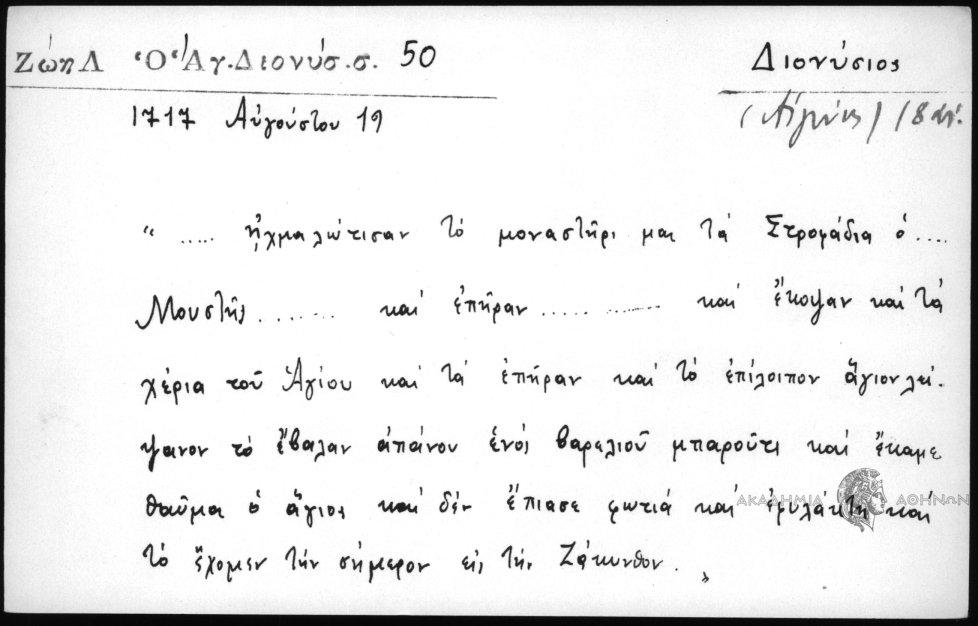 Ζώη Λ Ὁ Ἅγ. Διονύσ. σ. 50 Διονύσιος
1717 Αὐγούστου 19 (Αἰγίνης) 18
" ..... ᾐχμαλώτισαν τὸ μοναστῆρι μας τὰ Στροφάδια ὁ ....
Μουστῆς ........ καὶ ἐπῆραν ............. καὶ ἔκοψαν καὶ τὰ
χέρια τοῦ Ἁγίου καὶ τὰ ἐπῆραν καὶ τὸ ἐπίλοιπον ἅγιον λεί-
ψανον τὸ ἔβαλαν ἀπάνου ἑνὸς βαρελιοῦ μπαροῦτι καὶ ἔκαμε
θαῦμα ὁ ἅγιος καὶ δὲν ἔπιασε φωτιά καὶ ἐφυλάκτη καὶ
τὸ ἔχομεν τὴν σήμερον εἰς τὴν Ζάκυνθον. "
ΑΚΑΔΗΜΙΑ ΑΘΗΝΩΝ